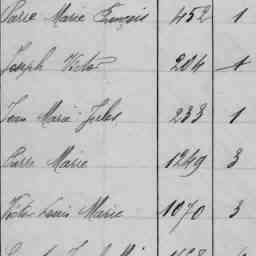 Pierre Marie François 452 1
Joseph Victor 204 1
Jean Marie Jules 233 1
Pierre Marie 1249 3
Victor Louis Marie 1070 3